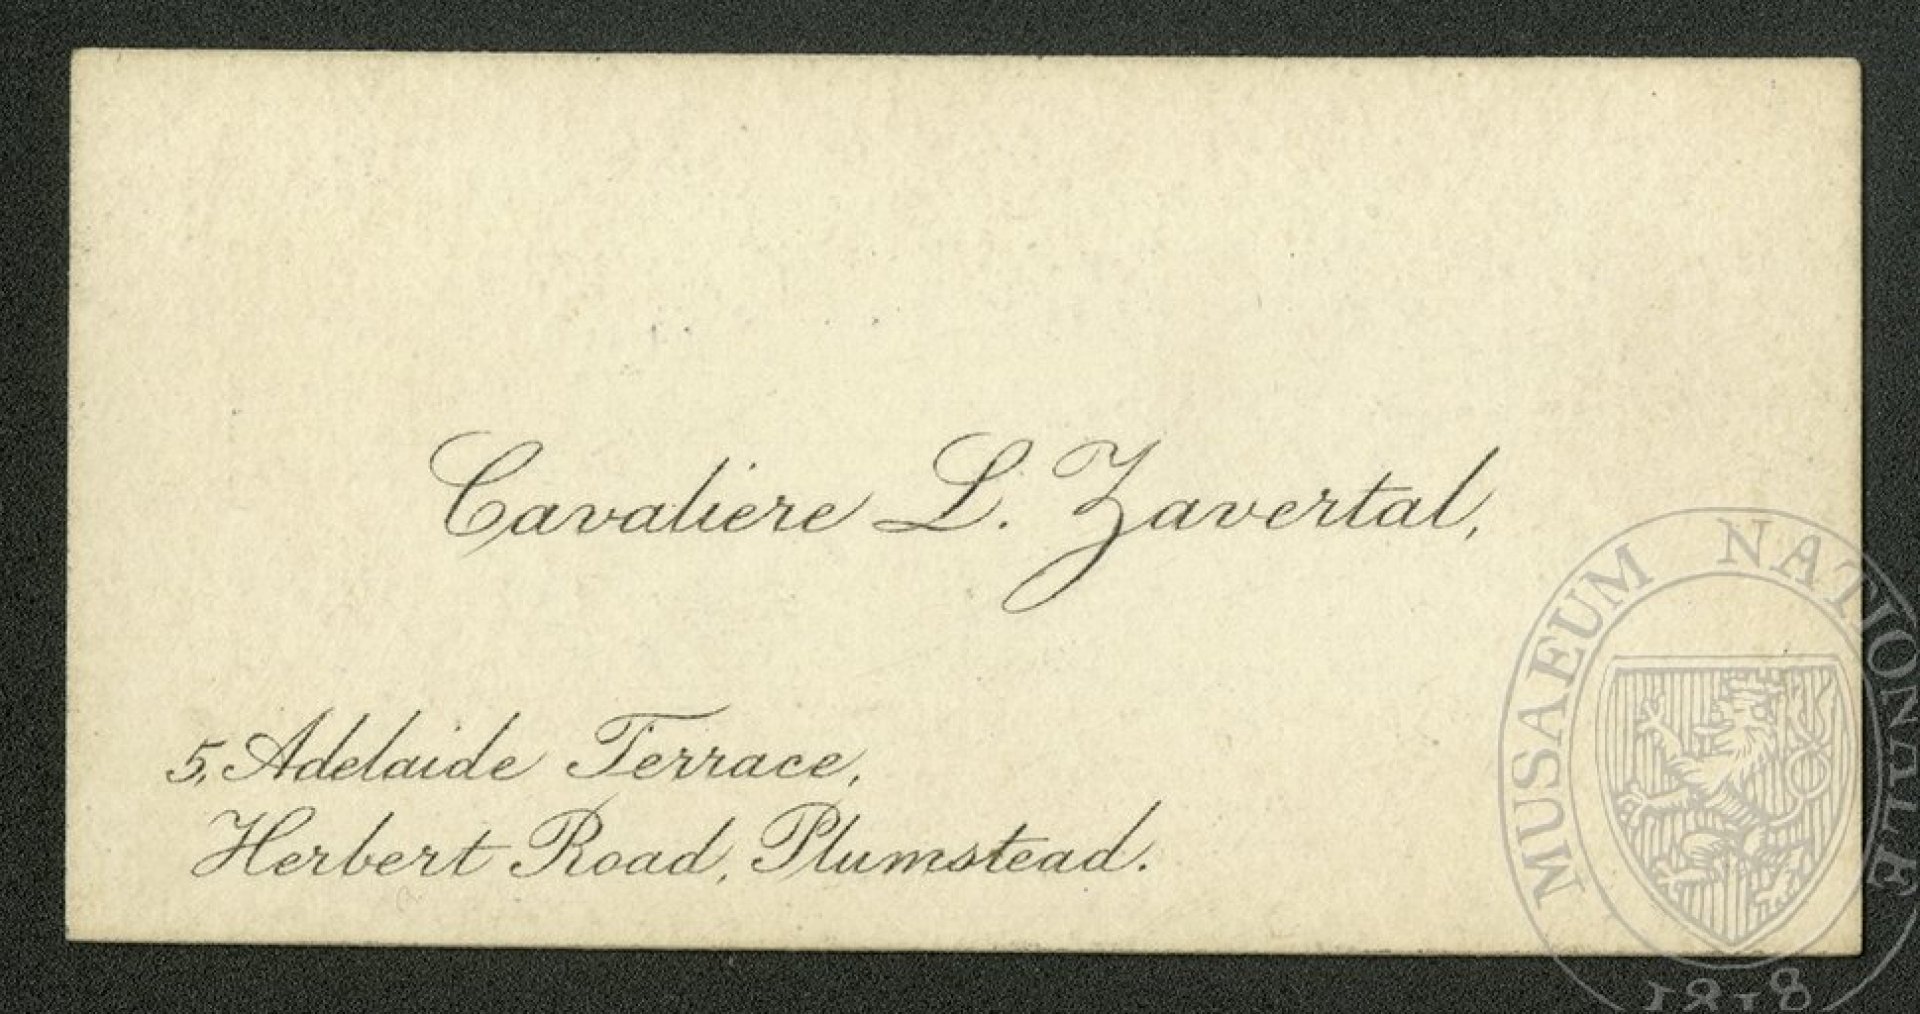 Cavaliere L. Zavertal,
5, Adelaide Terrace,
Herbert Road, Plumstead.
MUSAEUM NATIONALE
1818